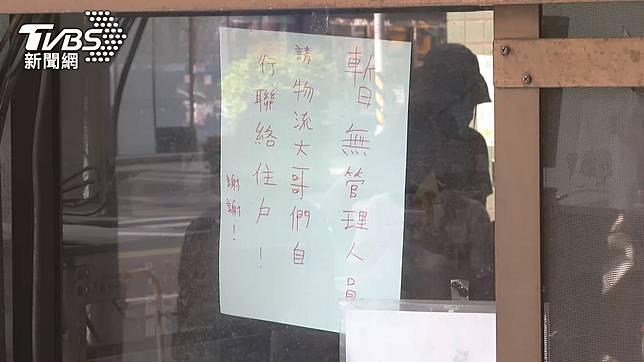 TVBS
新聞網
暫無管理人員
請物流大哥們自
行聯絡住戶！
謝謝！